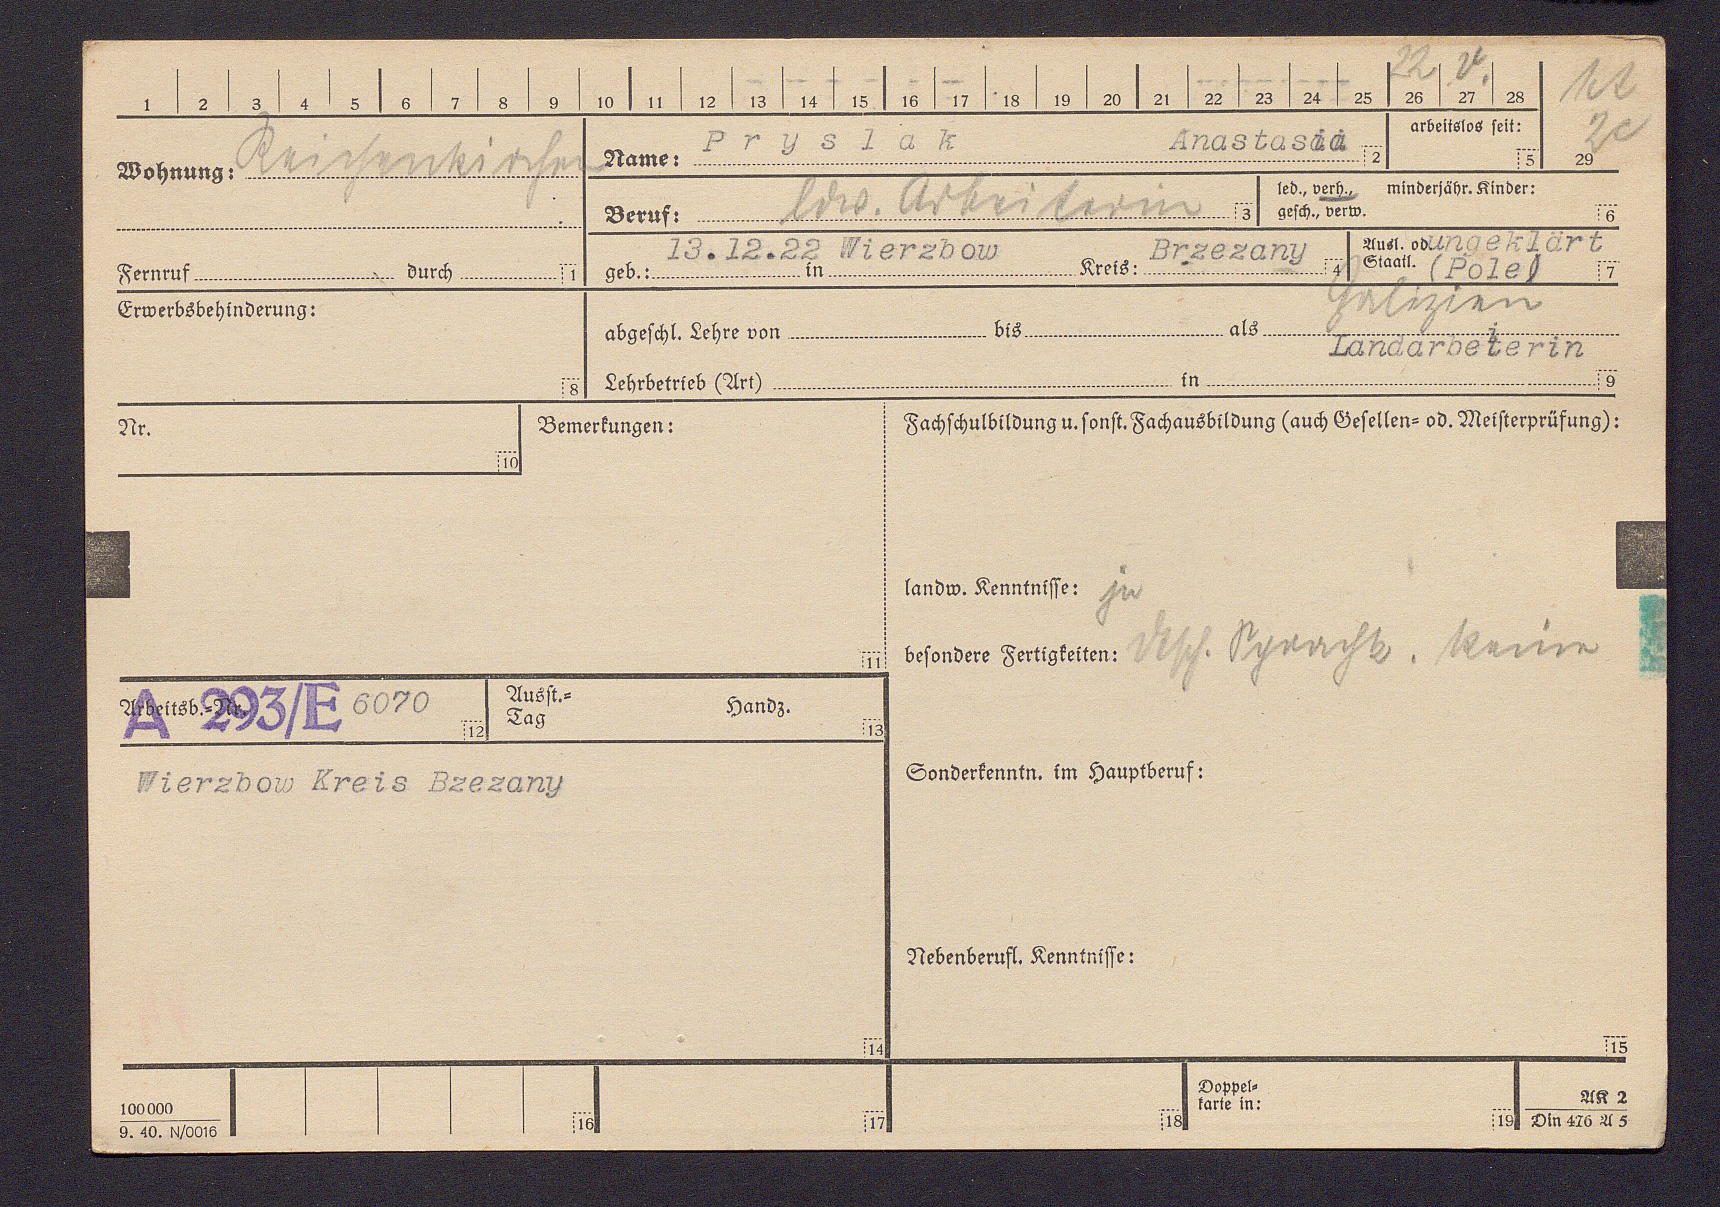 22 v.
1 2 3 4 5 6 7 8 9 10 11 12 13 14 15 16 17 18 19 20 21 22 23 24 25 26 27 28
2c
29
Wohnung: Reichenkirchen
Name: Pryslak Anastasia 2
arbeitslos seit: 5
Beruf: ldw. Arbeiterin 3
led., verh., minderjähr. Kinder:
gesch., verw. 6
Fernruf durch 1
geb.: 13.12.22 in Wierzbow Kreis: Brzezany 4
Ausl. od. ungeklärt
Staatl. (Pole) 7
Galizien
Erwerbsbehinderung: 8
abgeschl. Lehre von bis als
Landarbeiterin
Lehrbetrieb (Art) in 9
Nr. 10
Bemerkungen: 11
Fachschulbildung u. sonst. Fachausbildung (auch Gesellen= od. Meisterprüfung):
landw. Kenntnisse: ja
besondere Fertigkeiten: dtsch. Sprachk. keine
Arbeitsb.=Nr. A 293/E 6070 12
Ausst.=
Tag Handz. 13
Wierzbow Kreis Bzezany
Sonderkenntn. im Hauptberuf:
Nebenberufl. Kenntnisse:
14
15
100000
9. 40. N/0016
16
17
18
Doppel=
karte in: 19
AK 2
Din 476 A 5